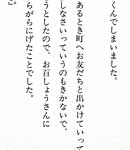 くんでしまいました。
あるとき町へお友だちと出かけていって
しなさいっていうのもきかないで、
うとしたので、お百しょうさんに
らがらにげたことでした。